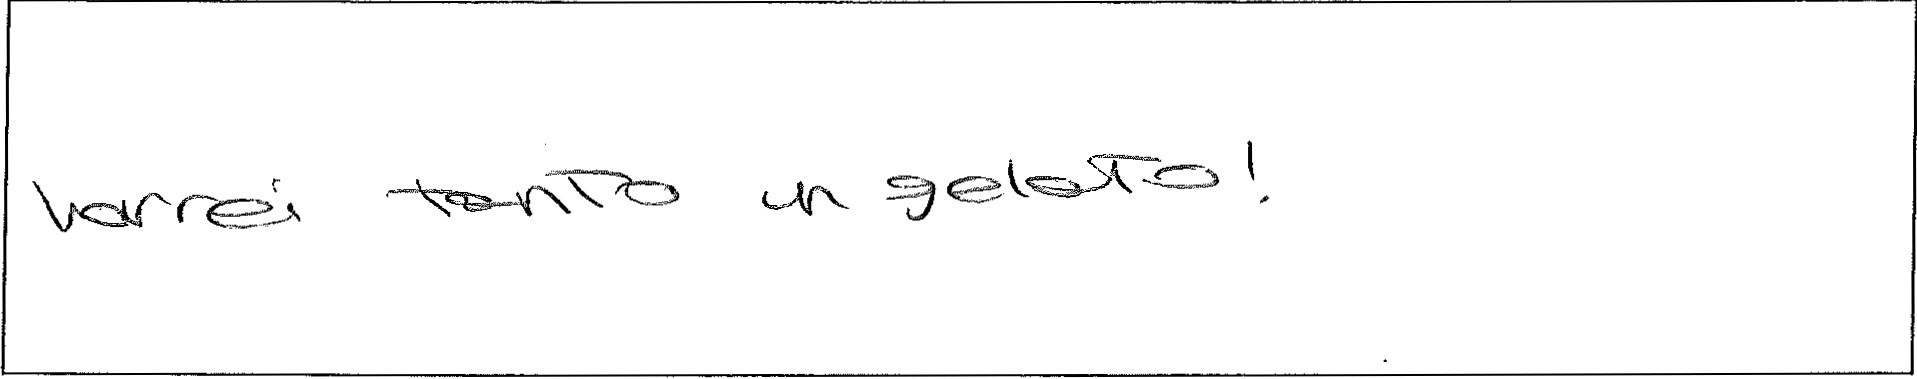 vorrei tanto un gelato!